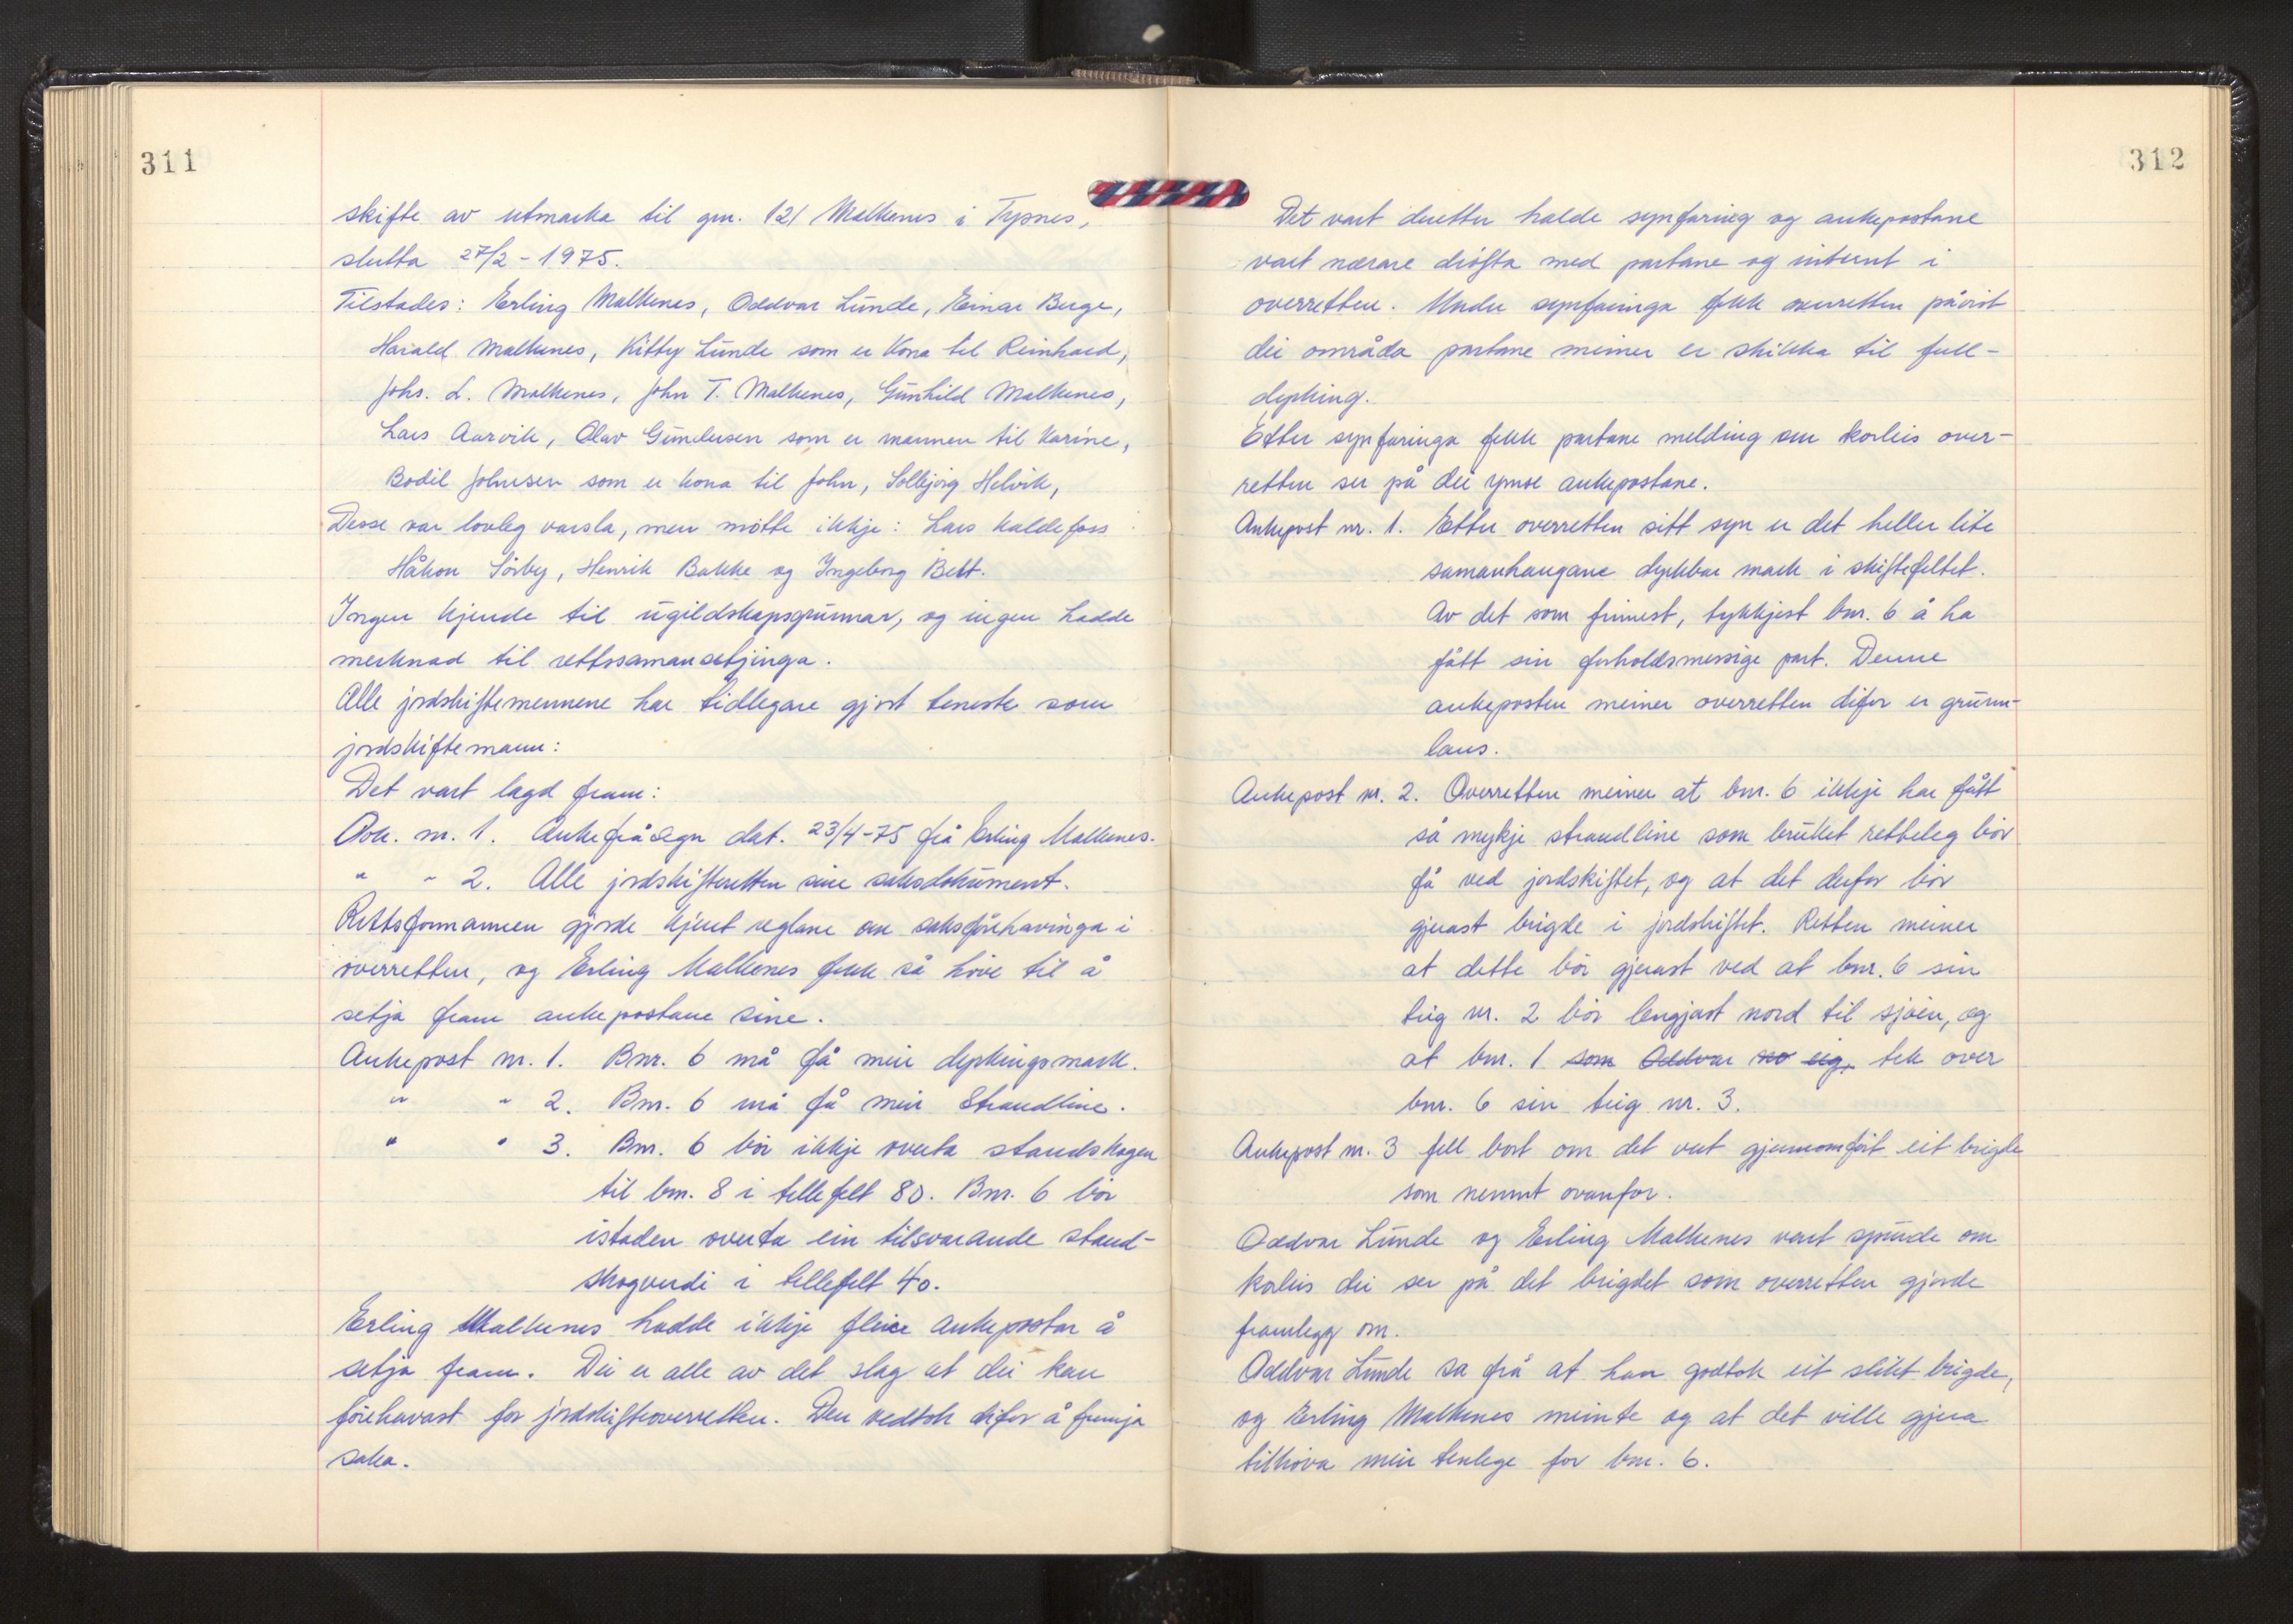 311
skifte av utmarka til gnr. 121 Malkenes i Tysnes,
slutta 27/2 - 1975.
Tilstades: Erling Malkenes, Oddvar Lunde, Einar Berge,
Harald Malkenes, Kitty Lunde som er kona til Reinhard,
Johs. L. Malkenes, John T. Malkenes, Gunhild Malkenes,
Lars Aarvik, Olav Gundersen som er mannen til Karine,
Bodil Johnsen som er kona til John, Solbjørg Helvik,
Desse var lovleg varsla, men møtte ikkje: Lars Kaldefoss
Håkon Sørby, Henrik Bakke og Ingeborg Bett.
Ingen kjende til ugildskapsgrunnar, og ingen hadde
merknad til rettssamansetjinga.
Alle jordskiftemennene har tidlegare gjort teneste som
jordskiftemann:
Det vart lagd fram:
Dok. nr. 1. Ankefråsegn dat. 23/4-75 frå Erling Malkenes.
" " 2. Alle jordskifteretten sine saksdokument.
Rettsformannen gjorde kjent reglane om saksførehavinga i
overretten, og Erling Malkenes fekk så høve til å
setja fram ankepostane sine.
Ankepost nr. 1. Bnr. 6 må få meir dyrkingsmark.
" " 2. Bnr. 6 må få meir strandline.
" " 3. Bnr. 6 bør ikkje overta standskogen
til bnr. 8 i tellefelt 80. Bnr. 6 bør
istaden overta ein tilsvarande stand-
skogverdi i tellefelt 40.
Erling Malkenes hadde ikkje fleire ankepostar å
setja fram. Dei er alle av det slag at dei kan
førehavast for jordskifteoverretten. Den vedtok difor å fremja
saka.
312
Det vart deretter halde synfaring og ankepostane
vart nærare drøfta med partane og internt i
overretten. Under synfaringa fekk overretten påvist
dei områda partane meiner er skikka til full-
dyrking.
Etter synfaringa fekk partane melding om korleis over-
retten ser på dei ymse ankepostane.
Ankepost nr. 1. Etter overretten sitt syn er det heller lite
samanhangane dyrkbar mark i skiftefeltet.
Av det som finnest, tykkjest bnr. 6 å ha
fått sin forholdsmessige part. Denne
ankeposten meiner overretten difor er grunn-
laus.
Ankepost nr. 2. Overretten meiner at bnr. 6 ikkje har fått
så mykje strandline som bruket retteleg bør
få ved jordskiftet, og at det derfor bør
gjerast brigde i jordskiftet. Retten meiner
at dette bør gjerast ved at bnr. 6 sin
teig nr. 2 bør lengjast nord til sjøen, og
at bnr. 1 som Oddvar no eig, tek over
bnr. 6 sin teig nr. 3.
Ankepost nr. 3 fell bort om det vert gjennomført eit brigde
som nemnt ovanfor.
Oddvar Lunde og Erling Malkenes vart spurde om
korleis dei ser på det brigdet som overretten gjorde
framlegg om.
Oddvar Lunde sa frå at han godtok eit slikt brigde,
og Erling Malkenes meinte og at det ville gjera
tilhøva meir tenlege for bnr. 6.